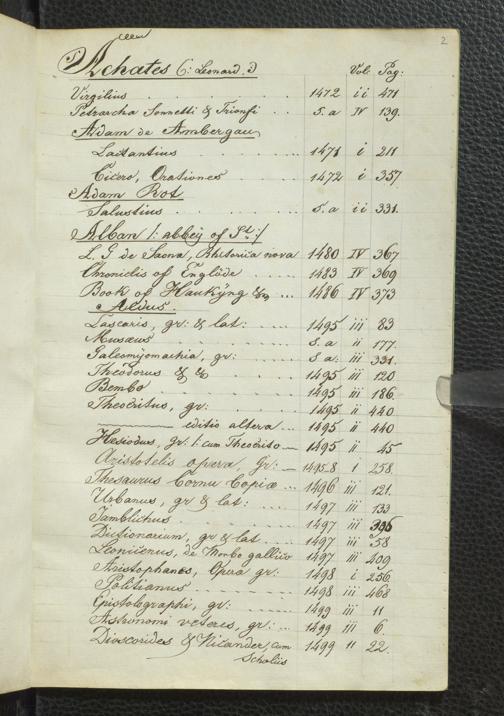 2
Achates (: Leonard :) Vol: Pag:
Virgilius . . . 1472 ii 471
Petrarcha Sonnetti & Trionfi . . s. a IV 139.
Adam de Ambergau
Lactantius . . . . . . 1471 i 211
Cicero, Orationes . . . . 1472 i 357
Adam Rot
Salustius . . . . . . s. a ii 331.
Alban /: abbey of St: /
L. G. de Saona, Rhetorica nova 1480 IV 367
Chronicles of Englöde . . . . 1483 IV 369
Book of Haukyng & ... 1486 IV 373
Aldus.
Lascaris, gr: & lat: . . . . 1495 iii 83
Musaeus . . . . s. a ii 177.
Galeomyomachia, gr: . . . s a: iii 331.
Theodorus & & . . . . 1495 iii 120
Bembo . . . . 1495 iii 186
Theocritus, gr: . . . . 1495 ii 440
——— editio altera ... 1495 ii 440
Hesiodus, gr. /: cum Theocrito — 1495 ii 45
Aristotelis opera, gr: — 1495-8 i 258.
Thesaurus Cornu Copiæ ... 1496 iii 121.
Urbanus, gr & lat: . . . . 1497 iii 133
Iamblichus . . . . 1497 iii
Dictionarium, gr & lat . . . 1497 iii 38
Leonicenus, de Morbo gallico 1497 iii 409
Aristophanes, Opera gr: 1498 i 256
Politianus . . . . 1498 iii 468
Epistolographi, gr: . . . . 1499 iii 11
Astronomi veteres, gr: ... 1499 iii 6.
Dioscorides & Nicander, cum 1499 ii 22.
Scholiis